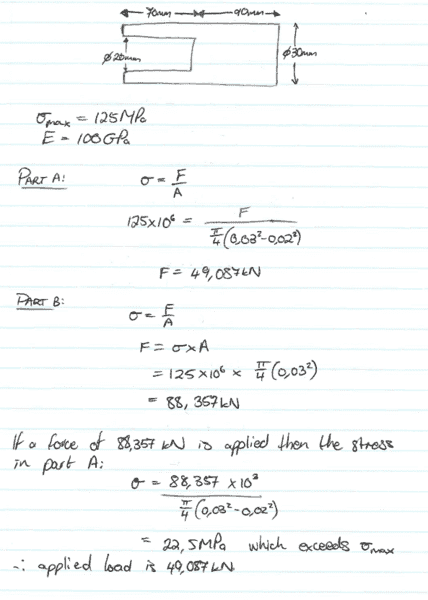 70mm 90mm
ϕ20mm ϕ30mm
σmax = 125MPa
E = 100GPa
PART A: σ = F/A
125x10⁶ = F / (π/4 (0,03² - 0,02²))
F = 49,087kN
PART B:
σ = F/A
F = σ x A
= 125 x10⁶ x π/4 (0,03²)
= 88,357kN
If a force of 88,357 kN is applied then the stress
in part A:
σ = 88,357 x 10³ / (π/4 (0,03² - 0,02²))
= 22,5MPa which exceeds σmax
∴ applied load is 49,087kN